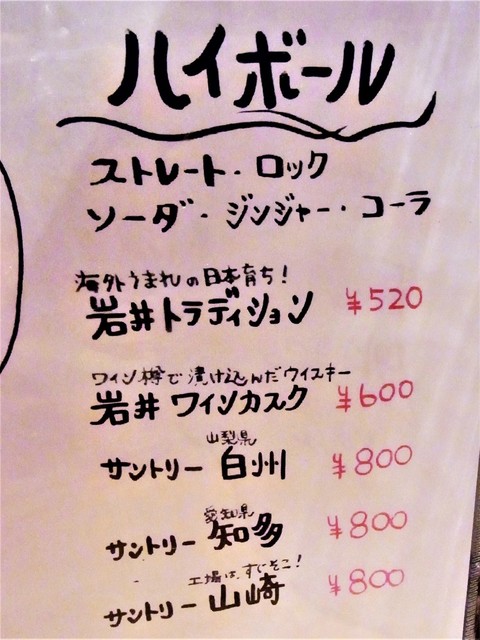 ハイボール
ストレート・ロック
ソーダ・ジンジャー・コーラ
海外うまれの日本育ち!
岩井トラディション ¥520
ワイン樽で漬け込んだウイスキー
岩井 ワインカスク ¥600
山梨県
サントリー 白州 ¥800
愛知県
サントリー 知多 ¥800
工場は、すぐそこ!
サントリー 山崎 ¥800